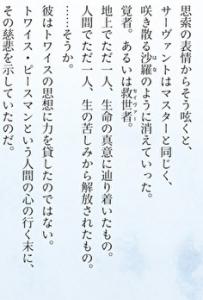 思索の表情からそう呟くと、
サーヴァントはマスターと同じく、
咲き散る沙羅のように消えていった。
覚者。あるいは救世者。
セイヴァー
地上でただ一人、生命の真意に辿り着いたもの。
人間でただ一人、生の苦しみから解放されたもの。
……そうか。
彼はトワイスの思想に力を貸したのではない。
トワイス・ピースマンという人間の心の行く末に、
その慈悲を示していたのだ。